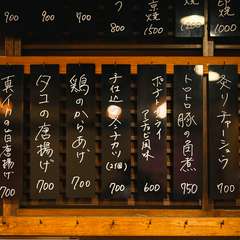 900
900
700
800
京焼
1500
印焼
1000
炙りチャーシュウ
700
トロトロ豚の角煮
950
ポテトフライ
アンチョビ風味
600
手仕込
メンチカツ
(2個)
700
鶏のからあげ
700
タコの唐揚げ
700
真イカの旨唐揚げ
700